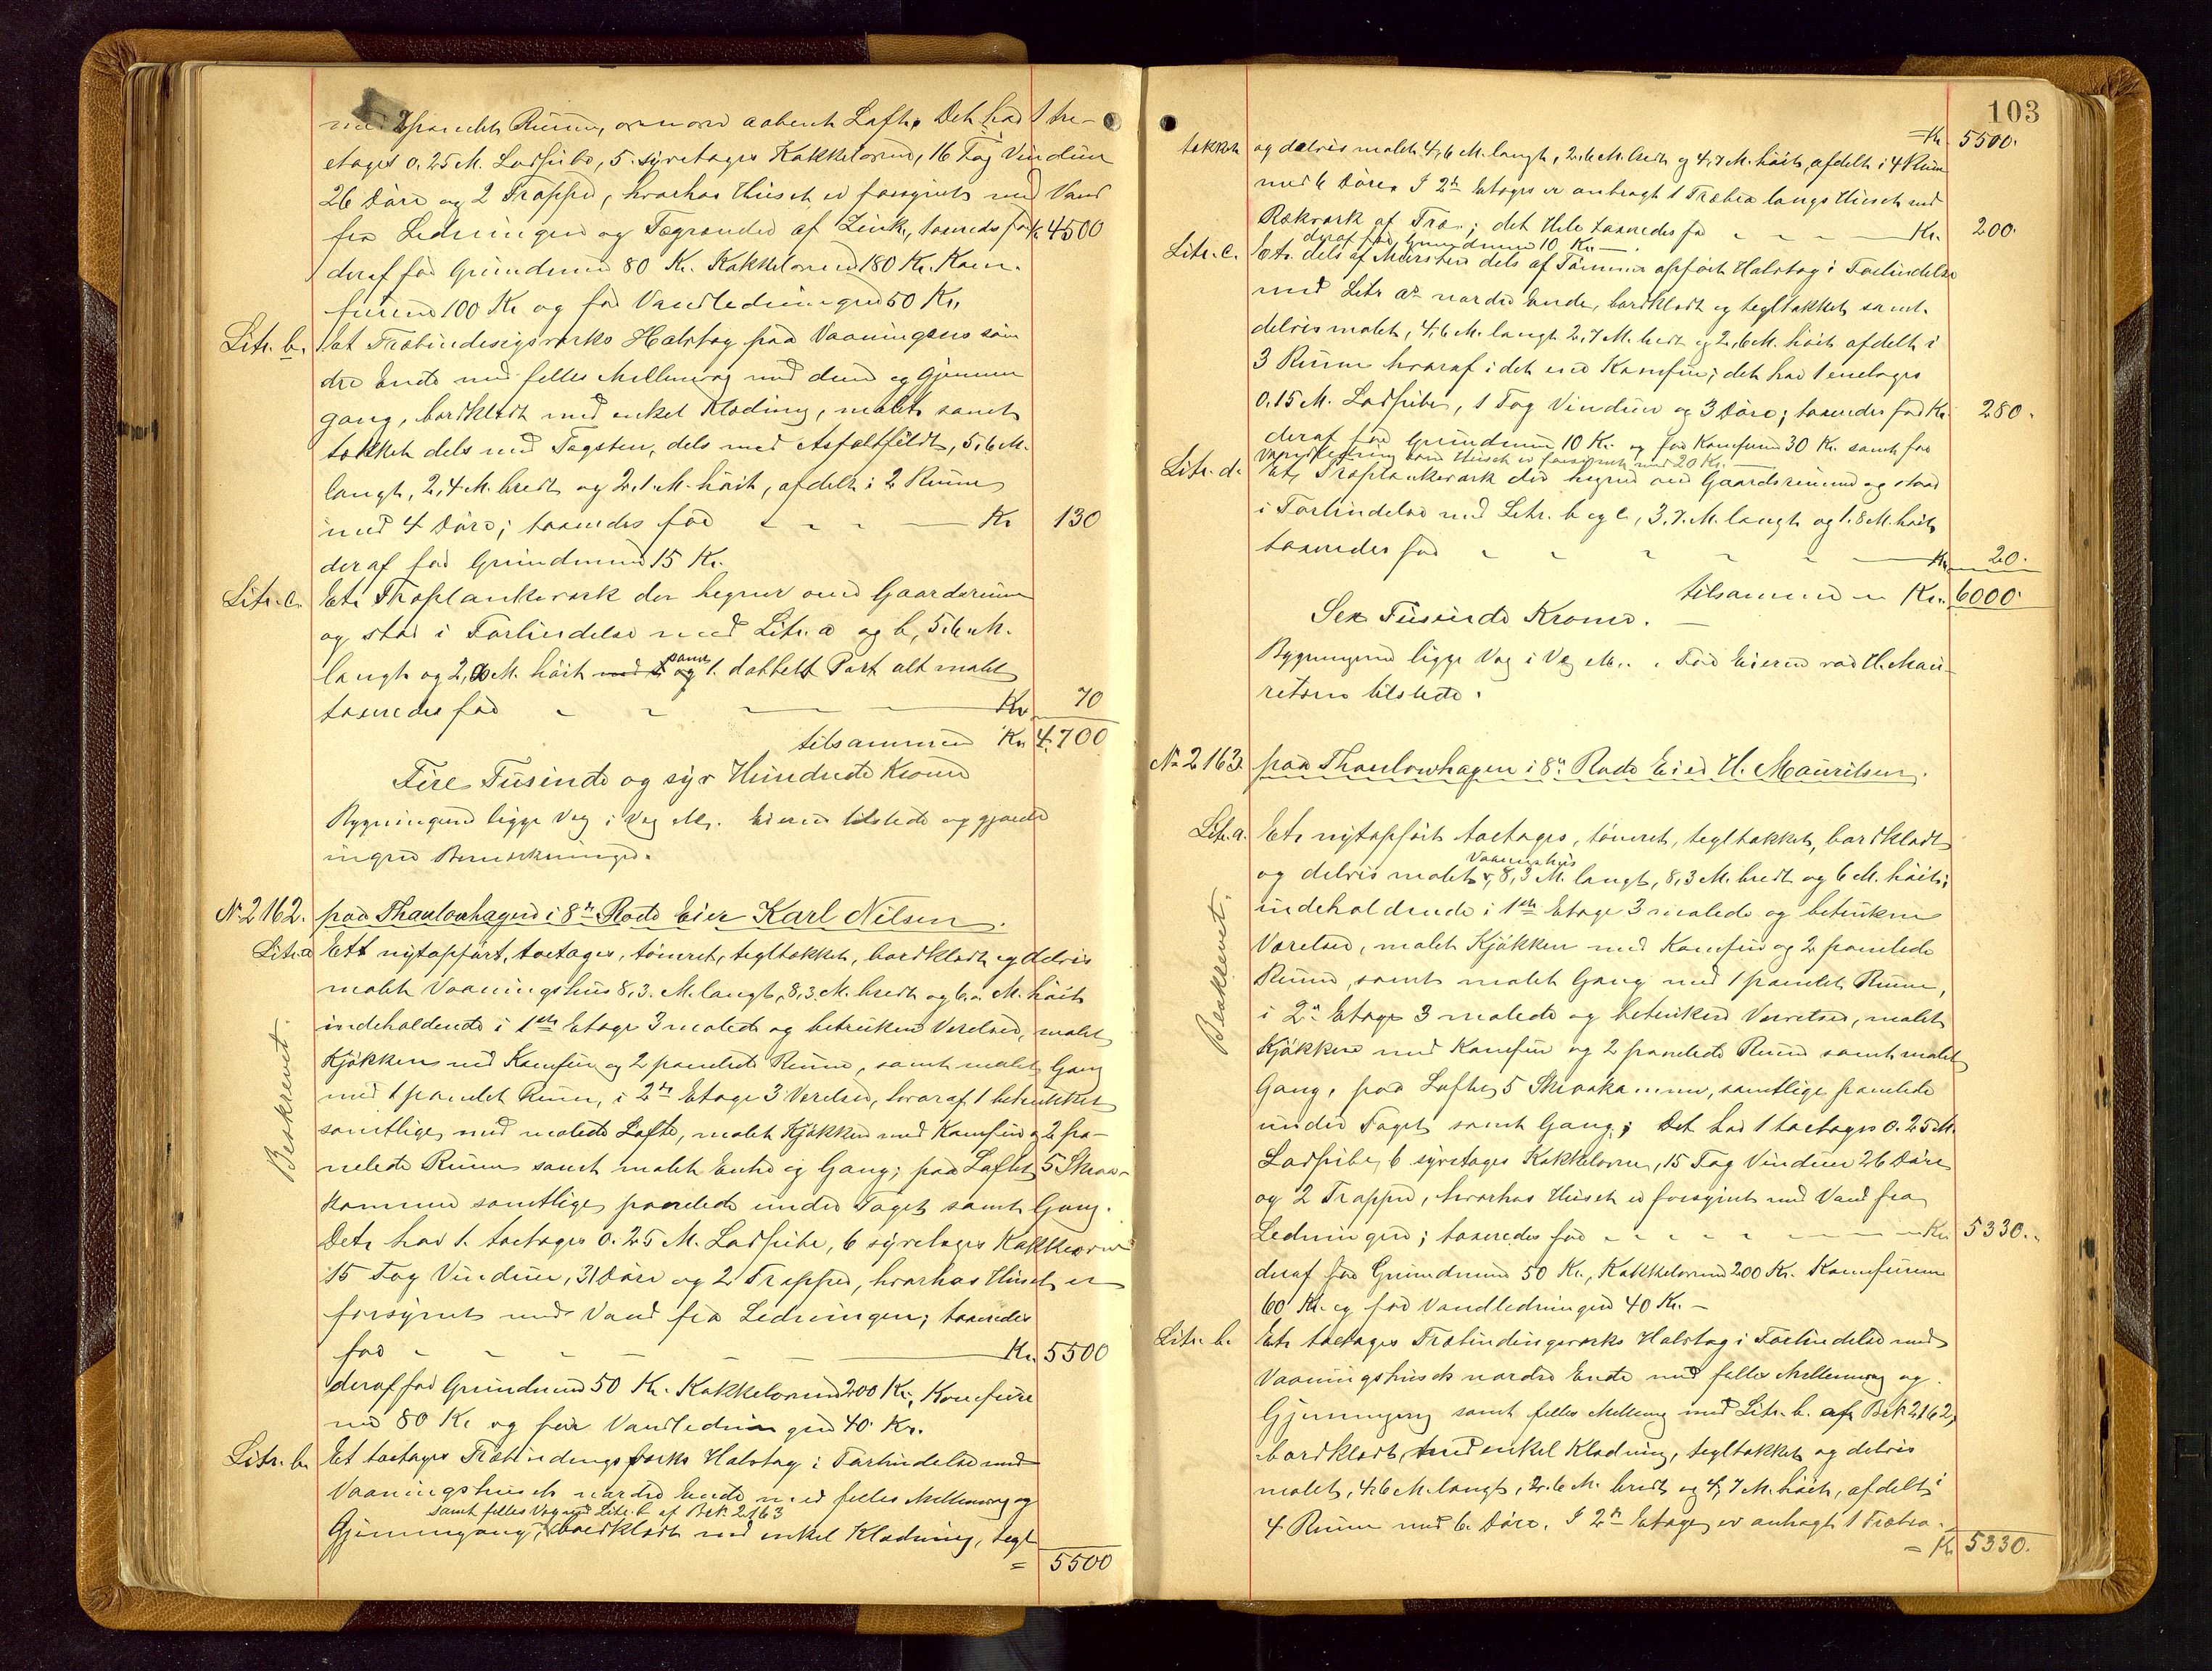 2 panelte Rum, ovenover aabent Loft. Det har 1 tre-
etages 0.25 M. Ladpibe, 5 syvetages Kakkelovne, 16 Fag Vinduer
26 Döre og 2 Trapper, hvorhos Huset er forsynet med Vand
fra Ledningen og Tagrender af Zink, taxeredes for Kr. 4500
deraf for Grundmur 80 Kr. Kakkelovne 180 Kr. Kom-
furene 100 Kr og for Vandledningen 50 Kr.
Litr. b. Et Træbindingsværks Halvtag paa Vaaningens sön
dre Ende med felles Mellemvæg med denne og Gjennem
gang, bordklædt med enkel Klædning, malet samt
tækket dels med Tagsten, dels med Asfaltfildt, 5,6 M.
langt, 2,4 M. bredt og 2,1 M. höit, afdelt i 2 Rum
med 4 Döre; taxeredes for - - - Kr 130
deraf for Grundmur 15 Kr.
Litr. c. Et Træplankeværk der hegner om Gaardsrum
og staar i Forbindelse med Litr. a og b, 5,6 M.
langt og 2,0 M. höit med samt 1. dobbelt Port alt malet
taxeredes for - - Kr 70
tilsammen Kr 4,700
Fire Tusinde og syv Hundrede Kroner
Bygningene ligge Væg i Væg M. Eieren tilstede og gjorde
ingen Bemærkninger.
No 2162. paa Thaulowhagen i 8de Rode Eier Karl Nilsen.
Litr. a Ett nytopfört, toetages, tömret, tegltækket, bordklædt og delvis
malet Vaaningshus 8,3. M. langt, 8,3. M. bredt og 6.0 M. höit
indeholdende i 1ste Etage 3 malede og betrukne Værelser, malet
Kjökken med Komfur og 2 panelede Rum, samt malet Gang
med 1 panelet Rum, i 2den Etage 3 Værelser, hvoraf 1 betrukket
samtlige med malede Lofte, malet Kjökken med Komfur og 2 pa-
nelede Rum samt malet Entre og Gang; paa Loftet 5 Skraa-
kammer samtlige panelede under Taget samt Gang.
Det har 1. toetages 0.25 M. Ladpibe, 6 syvetages Kakkelovne
15 Fag Vinduer, 31 Döre og 2 Trapper, hvorhos Huset er
forsynet med Vand fra Ledningen; taxeredes
for - - - - - Kr. 5500
deraf for Grundmur 50 Kr. Kakkelovne 200 Kr. Komfure
ne 80 Kr og for Vandledningen 40 Kr.
Litr. b. Et toetages Træbindingsværks Halvtag i Forbindelse med
Vaaningshusets nordre Ende med felles Mellemvæg og
samt felles Væg med Litr. b af Bek. 2163
Gjennemgang, bordklædt med enkel Klædning, tegl
= 5500
Beskrevet.
103
Kr. 5500.
tækket og delvis malet 4,6 M. langt, 2,6 M. bredt og 4,7 M. höit, afdelt i 4 Rum
med 6 Döre. I 2den Etage er anbragt 1 Træbro langs Huset med
Rækværk af Træ; det Hele taxeredes for - - - Kr. 200.
deraf for Grundmur 10 Kr.
Litr. c. Et dels af Mursten dels af Tömmer opfört Halvtag i Forbindelse
med Litr a's nordre Ende, bordklædt og tegltækket samt
delvis malet, 4,6 M. langt 2,7 M. bredt og 2,6 M. höit afdelt i
3 Rum hvoraf i det ene Komfur; det har 1 enetages
0.15 M. Ladpibe, 1 Fag Vinduer og 3 Döre; taxeredes for Kr. 280.
deraf for Grundmur 10 Kr. og for Komfur 30 Kr. samt for
Vandledning som Huset er forsynet med 20 Kr.
Litr. d. Et Træplankeværk der hegner om Gaardsrummet og staar
i Forbindelse med Litr. b og c, 3.7. M. langt og 1.8 M. höit
taxeredes for - - - - - Kr. 20.
tilsammen Kr. 6000.
Sex Tusinde Kroner.
Bygningene ligge Væg i Væg M. For Eieren var H. Mau-
ritzen tilstede.
No 2163 paa Thaulowhagen i 8de Rode Eier H. Mauritsen.
Litr. a. Et nytopfört toetages, tömret, tegltækket, bordklædt
Vaaningshus
og delvis malet, 8,3 M. langt, 8,3 M. bredt og 6 M. höit;
indeholdende i 1ste Etage 3 malede og betrukne
Værelser, malet Kjökken med Komfur og 2 panelede
Rum, samt malet Gang med 1 panelet Rum,
i 2den Etage 3 malede og betrukne Værelser, malet
Kjökken med Komfur og 2 panelede Rum samt malet
Gang, paa Loftet 5 Skraakammer, samtlige panelede
under Taget samt Gang; Det har 1 toetages 0.25 M.
Ladpibe, 6 syvetages Kakkelovne, 15 Fag Vinduer 26 Döre
og 2 Trapper, hvorhos Huset er forsynet med Vand fra
Ledningen; taxeredes for - - - - - Kr. 5330.
deraf for Grundmur 50 Kr., Kakkelovne 200 Kr. Komfurene
60 Kr. og for Vandledningen 40 Kr. -
Litr. b. Et toetages Træbindingsværks Halvtag i Forbindelse med
Vaaningshusets nordre Ende med felles Mellemvæg og
Gjennemgang samt felles Mellemvæg med Litr. b. af Bek 2162,
bordklædt med enkel Klædning, tegltækket og delvis
malet, 4,6 M. langt, 2.6 M. bredt og 4,7 M. höit, afdelt i
4 Rum med 6. Döre. I 2den Etage er anbragt 1 Træbro
= Kr. 5330.
Beskrevet.